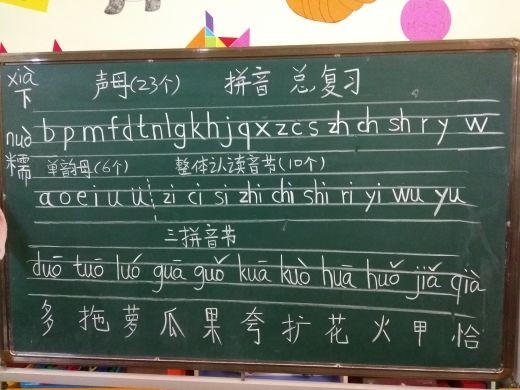 xià
下
nuò
糯
声母(23个) 拼音 总复习
b p m f d t n l g k h j q x z c s zh ch sh r y w
单韵母(6个) 整体认读音节(10个)
a o e i u ü zi ci si zhi chi shi ri yi wu yu
三拼音节
duō tuō luó guā guǒ kuā kuò huā huǒ jiǎ qià
多 拖 萝 瓜 果 夸 扩 花 火 甲 恰